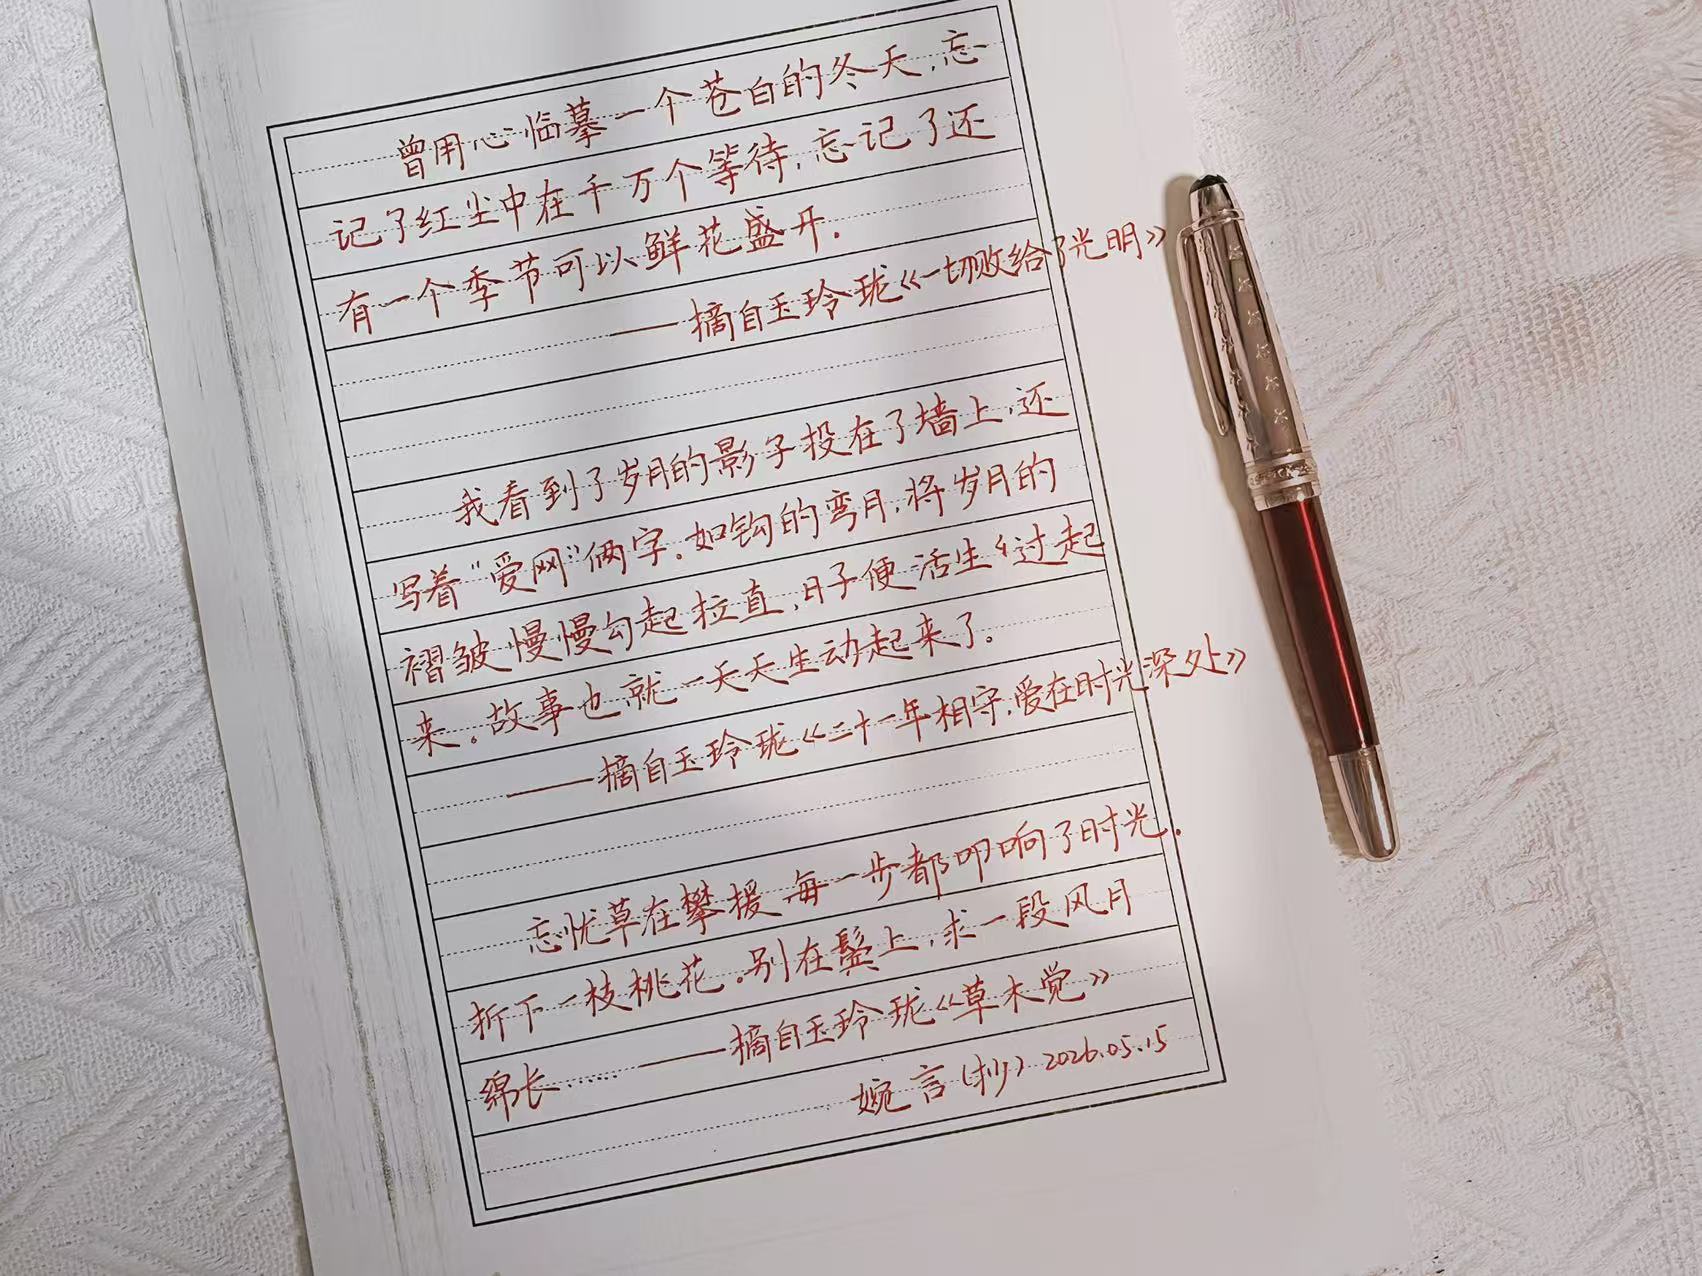 曾用心临摹一个苍白的冬天，忘
记了红尘中在千万个等待，忘记了还
有一个季节可以鲜花盛开．
——摘自玉玲珑《一切败给了光明》
我看到了岁月的影子投在了墙上，还
写着“爱网”俩字．如钩的弯月，将岁月的
褶皱慢慢勾起拉直，日子便活生生过起
来。故事也就一天天生动起来了。
——摘自玉玲珑《二十一年相守，爱在时光深处》
忘忧草在攀援 每一步都叩响了时光．
折下一枝桃花．别在鬓上，求一段风月
绵长……——摘自玉玲珑《草木觉》
婉言（抄）2026.05.15